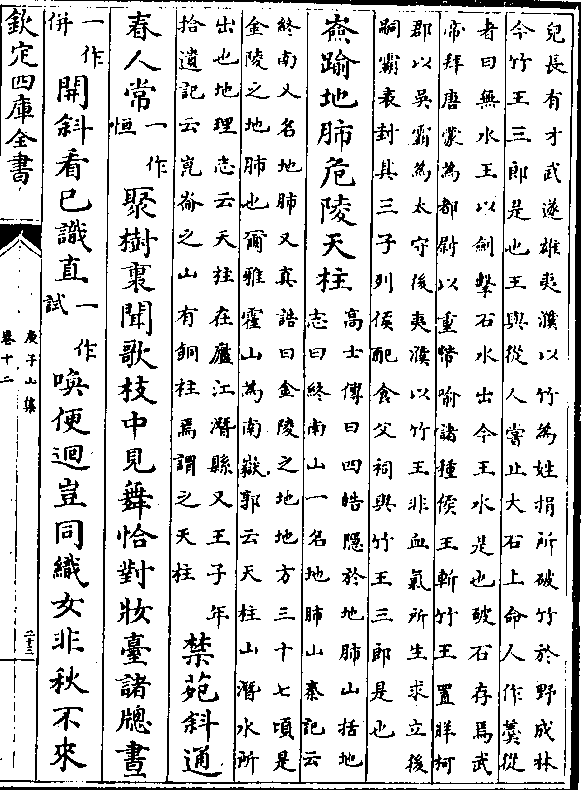 兒長有才武遂雄夷濮以竹為姓捐所破竹於野成林
今竹王三郎是也王與從人嘗止大石上命人作羹從
者曰無水王以劍擊石水出今王水是也破石存焉武
帝拜唐蒙為都尉以重幣喻諸種侯王斬竹王置牂柯
郡以吳霸為太守後夷濮以竹王非血氣所生求立後
嗣霸表封其三子列侯配食父祠與竹王三郎是也
嵞踰地肺危陵天柱
高士傳曰四皓隱於地肺山括地
志曰終南山一名地肺山秦記云
終南又名地肺又真誥曰金陵之地地方三十七頃是
金陵之地肺也爾雅霍山為南嶽郭云天柱山潛水所
出也地理志云天柱在廬江潛縣又王子年
拾遺記云崑崙之山有銅柱焉謂之天柱
禁苑斜通
春人常一作恒聚樹裏聞歌枝中見舞恰對妝臺諸牕晝
一作併開斜看已識直一作試喚便迴豈同織女非秋不來
欽定四庫全書
庾子山集
卷十二
二十三